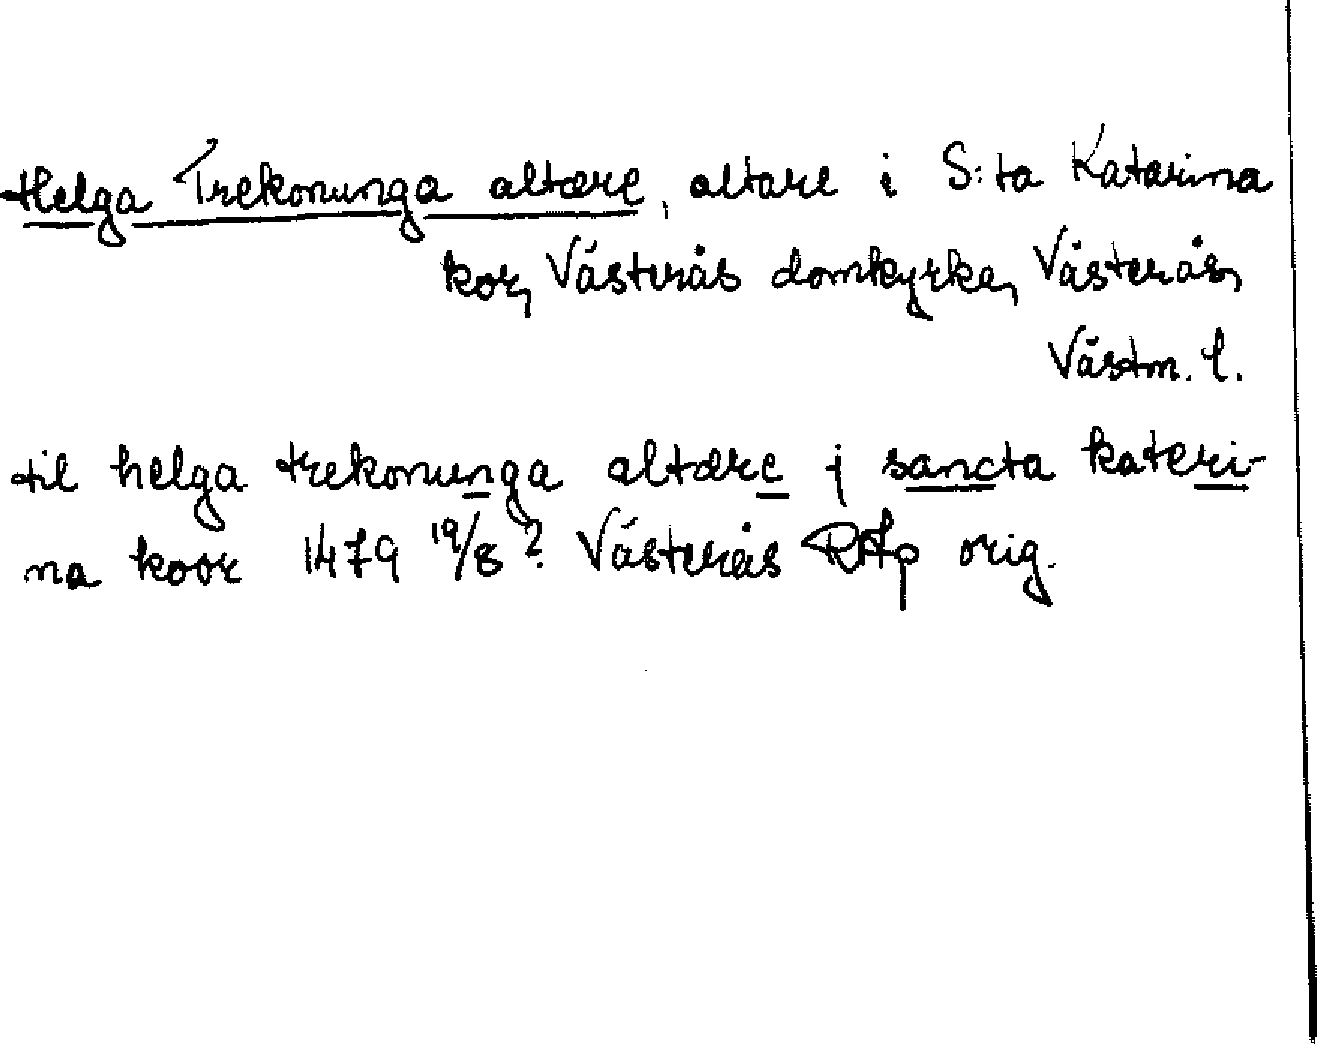 Helga Trekonunga altære, altare i S:ta Katarina
kor, Västerås domkyrka, Västerås,
Västm. l.
til helga trekonunga altære j sancta kateri-
na koor 1479 19/8? Västerås RAp orig.